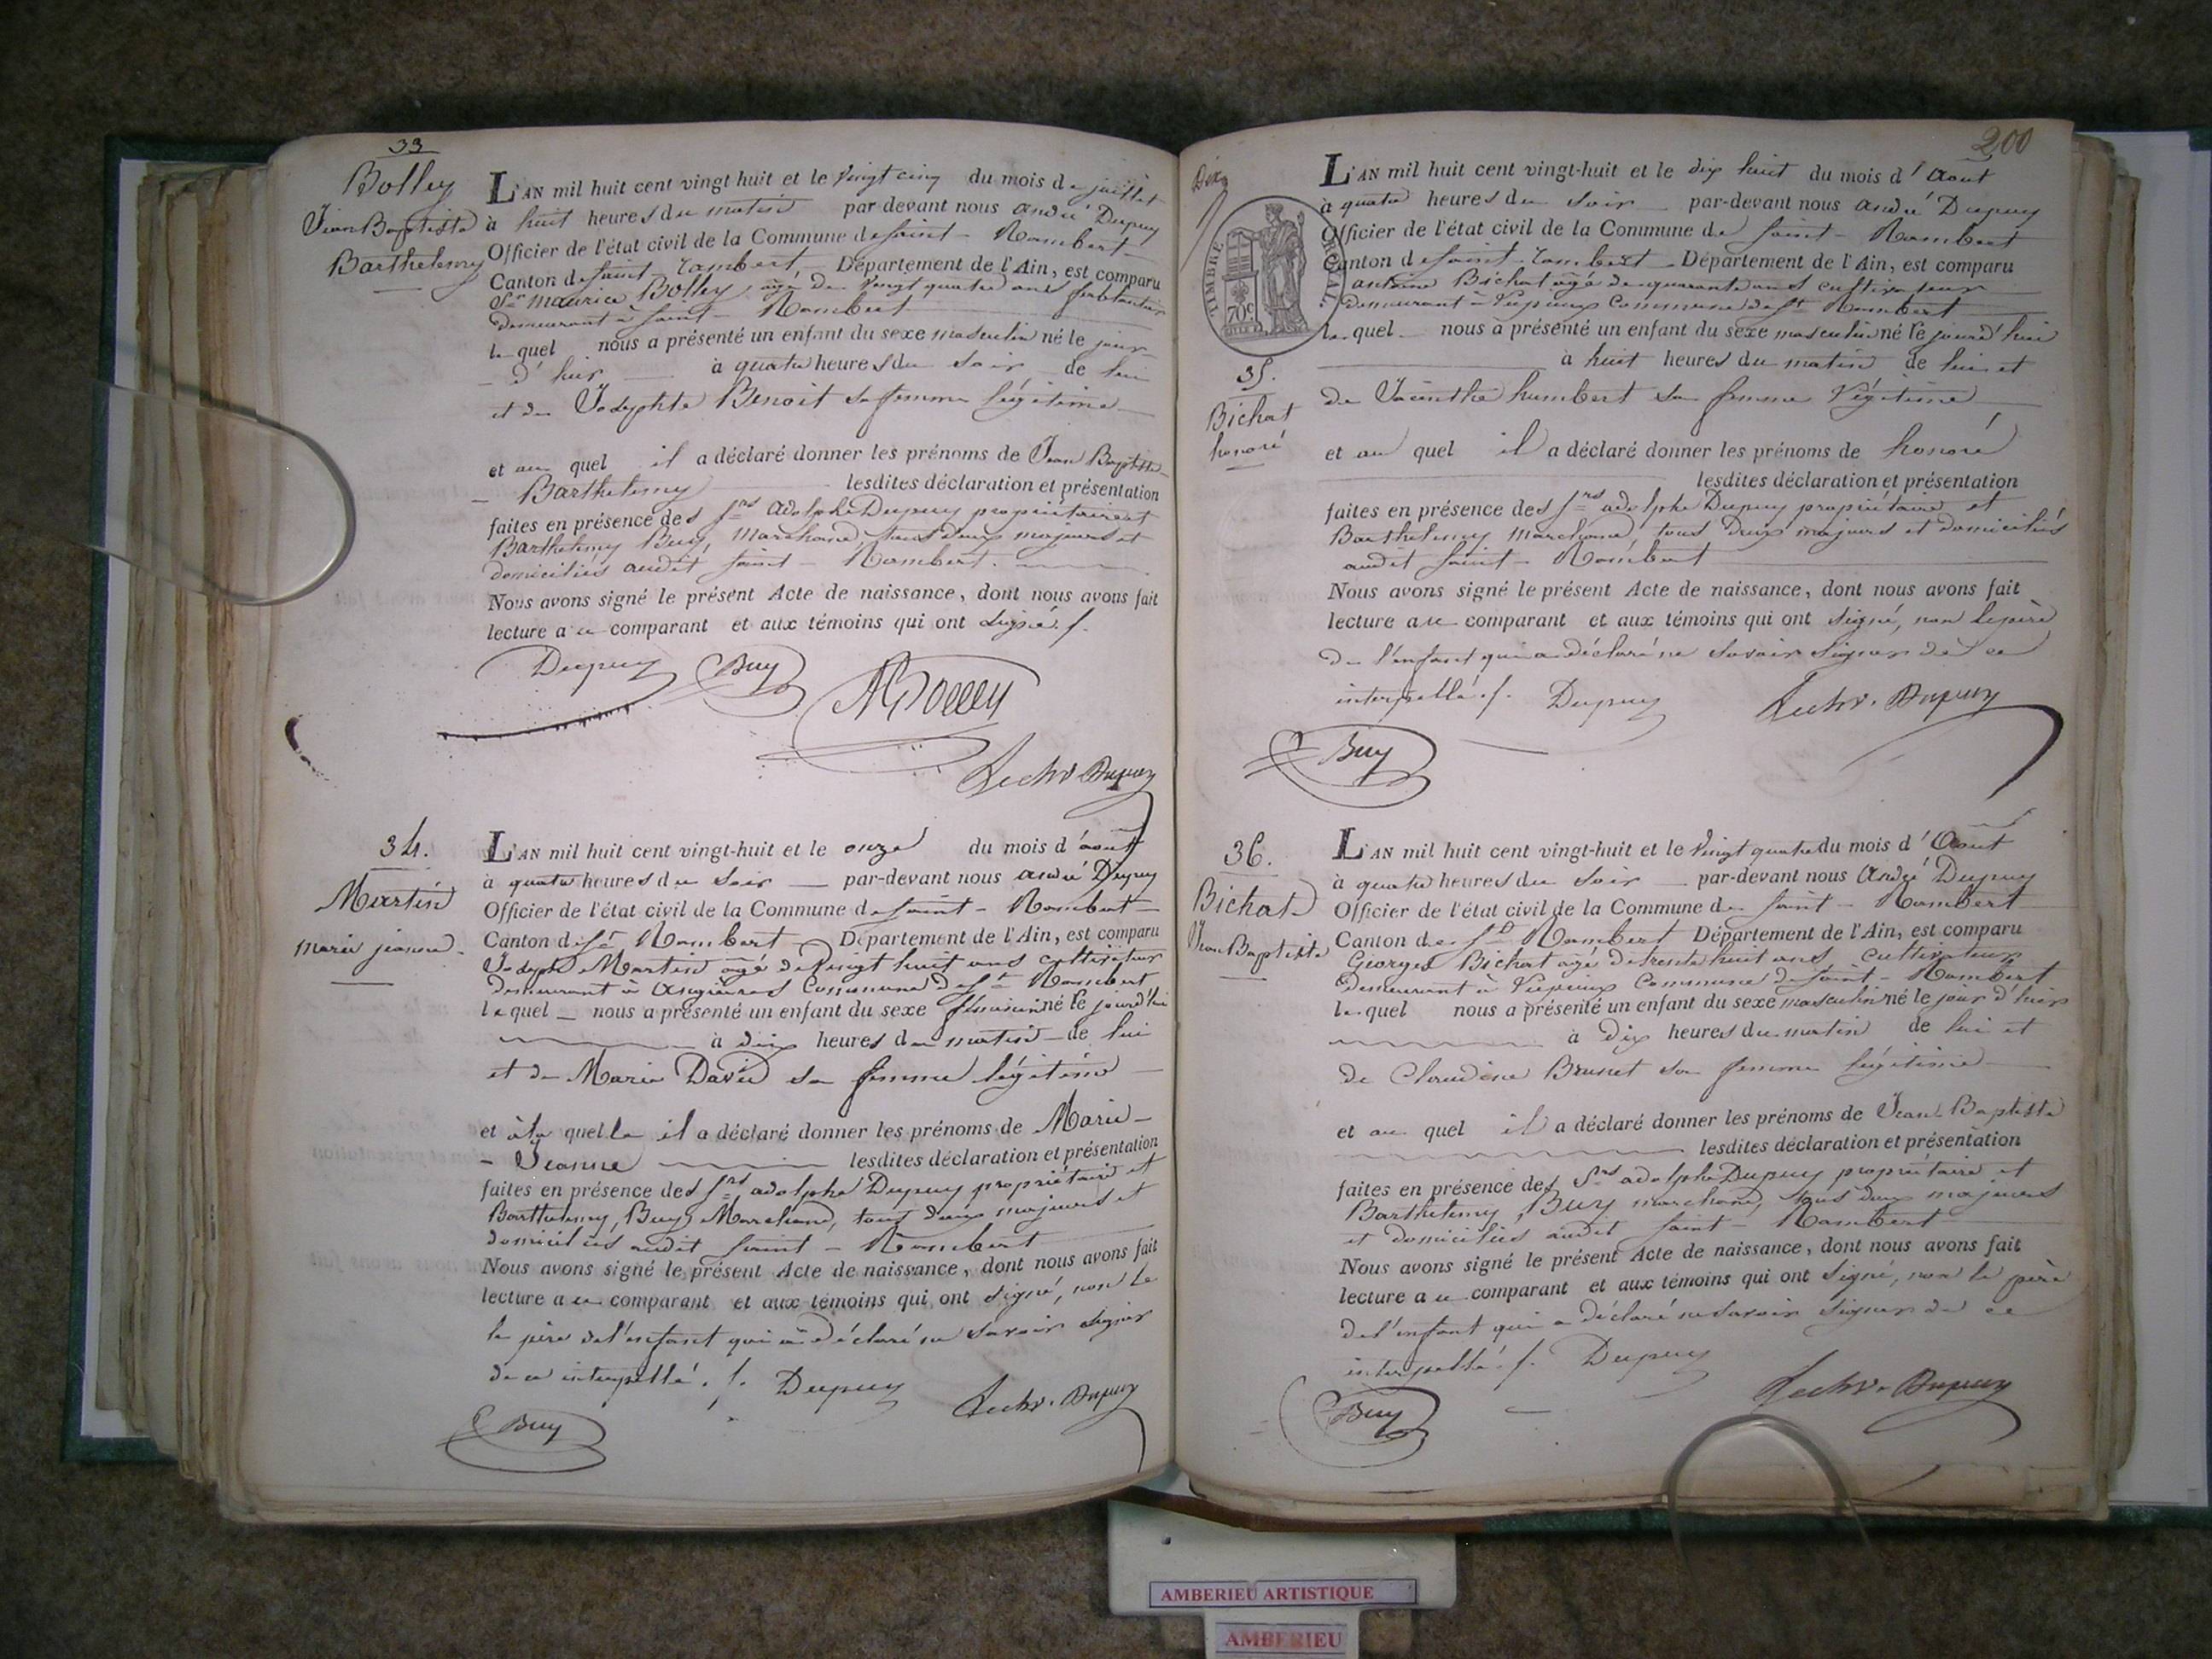 33
Bolley
Jean Baptiste
Barthelemy
L'AN mil huit cent vingt-huit et le vingt cinq du mois de juillet
à huit heures du matin par-devant nous andré Dupuy
Officier de l'état civil de la Commune de saint-Rambert
Canton de saint-rambert Département de l'Ain, est comparu
Sr maurice Bolley, âgé de vingt quatre ans ferblantier
demeurant à saint-Rambert
le quel nous a présenté un enfant du sexe masculin né le jour
d'hier à quatre heures du soir de lui
et de Josephte Benoit sa femme légitime
et au quel il a déclaré donner les prénoms de Jean Baptiste
Barthelemy lesdites déclaration et présentation
faites en présence des Srs adolphe Dupuy propriétaire et
Barthelemy Buy, marchand, tous deux majeurs et
domiciliés audit saint-Rambert.
Nous avons signé le présent Acte de naissance, dont nous avons fait
lecture au comparant et aux témoins qui ont signé ./.
Dupuy Buy MBolley
Dupuy
34.
Martin
marie jeanne.
L'AN mil huit cent vingt-huit et le onze du mois d'août
à quatre heures du soir par-devant nous andré Dupuy
Officier de l'état civil de la Commune de saint-Rambert
Canton de st Rambert Département de l'Ain, est comparu
Joseph Martin âgé de vingt huit ans cultivateur
demeurant à Angrières Commune de st Rambert
le quel nous a présenté un enfant du sexe féminin né le jourd'hui
à dix heures du matin de lui
et de Marie David sa femme légitime
et à la quelle il a déclaré donner les prénoms de Marie-
-Jeanne lesdites déclaration et présentation
faites en présence des Srs adolphe Dupuy propriétaire et
Barthelemy Buy Marchand, tous deux majeurs et
domiciliés audit saint-Rambert
Nous avons signé le présent Acte de naissance, dont nous avons fait
lecture au comparant et aux témoins qui ont signé, non le
le père de l'enfant qui a déclaré ne savoir signer
de ce interpellé ./. Dupuy Dupuy
Buy
200
TIMBRE ROYAL
70c
35.
Bichat
honoré
L'AN mil huit cent vingt-huit et le dix huit du mois d'Aout
à quatre heures du soir par-devant nous andré Dupuy
Officier de l'état civil de la Commune de saint-Rambert
Canton de saint-rambert Département de l'Ain, est comparu
antoine Bichat âgé de quarante ans cultivateur
demeurant à Vupieux Commune de st Rambert
le quel nous à présenté un enfant du sexe masculin né le jourd'hui
à huit heures du matin de lui et
de Jacinthe humbert sa femme légitime
et au quel il a déclaré donner les prénoms de honoré
lesdites déclaration et présentation
faites en présence des Srs adolphe Dupuy propriétaire et
Barthelemy marchand, tous deux majeurs et domiciliés
audit saint-Rambert
Nous avons signé le présent Acte de naissance, dont nous avons fait
lecture au comparant et aux témoins qui ont signé, non le père
de l'enfant qui a déclaré ne savoir signer de ce
interpellé ./. Dupuy Dupuy
Buy
36.
Bichat
Jean Baptiste
L'AN mil huit cent vingt-huit et le vingt quatre du mois d'Août
à quatre heures du soir par-devant nous André Dupuy
Officier de l'état civil de la Commune de saint-Rambert
Canton de st Rambert Département de l'Ain, est comparu
Georges Bichat âgé de trente huit ans cultivateur
demeurant à Vupieux Commune de saint-Rambert
le quel nous a présenté un enfant du sexe masculin né le jour d'hier
à dix heures du matin de lui et
de Claudine Brunet sa femme légitime
et au quel il a déclaré donner les prénoms de Jean-Baptiste
lesdites déclaration et présentation
faites en présence des Srs adolphe Dupuy propriétaire et
Barthelemy Buy marchand, tous deux majeurs
et domiciliés audit saint-Rambert
Nous avons signé le présent Acte de naissance, dont nous avons fait
lecture au comparant et aux témoins qui ont signé, non le père
de l'enfant qui a déclaré ne savoir signer de ce
interpellé ./. Dupuy Dupuy
Buy
AMBERIEU ARTISTIQUE
AMBERIEU